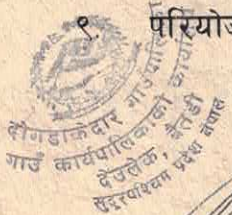 ९. परियोज
दोगडाकेदार गाउँपालिका
गाउँ कार्यपालिकाको कार्यालय
देउलेक, बैतडी
सुदूरपश्चिम प्रदेश नेपाल